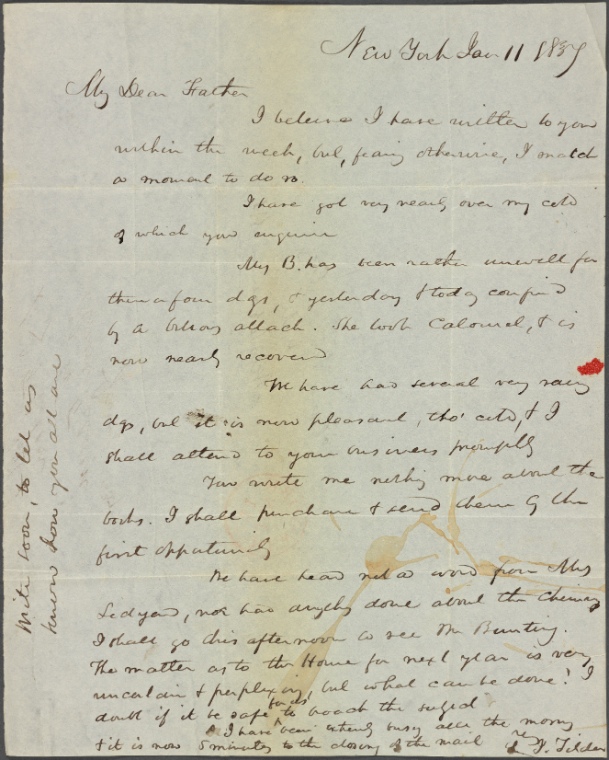 New York Jan 11 1837
My Dear Father
I believe I have written to you
within the week, but, fearing otherwise, I snatch
a moment to do so.
I have got very nearly over my cold
of which you enquire
Mrs B. has been rather unwell for
three or four days, & yesterday & today confined
by a bilious attack. She took Calomel, & is
now nearly recovered
We have had several very rainy
days, but it is now pleasant, tho' cold, & I
shall attend to your business promptly
You write me nothing more about the
books. I shall purchase & send them by the
first opportunity
We have heard not a word from Mrs
Ledyard, nor has anything done about the chimney
I shall go this afternoon to see Mr Bunting.
The matter as to the House for next year is very
uncertain & perplexing, but what can be done? I
doubt if it be safe for us to broach the subject
I have been extremely busy all the morning
& it is now 5 minutes to the closing of the mail
S. J. Tilden
Write soon, to let us
know how you all are